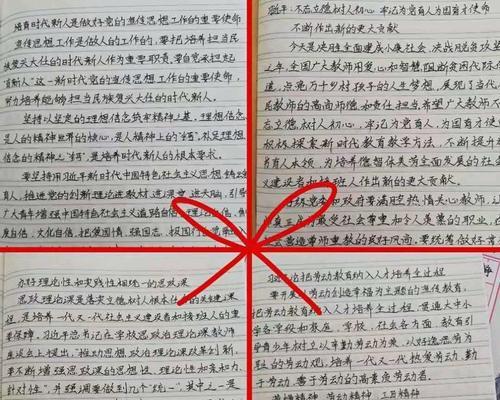 培育时代新人是做好党的宣传思想工作的重要使命
宣传思想工作是做人的工作的,要把培养担当民
族复兴大任的时代新人作为重要职责,要自觉承担起
育新人"这一新时代党的宣传思想工作的重要使命,
努力培养能够担当民族复兴大任的时代新人。
坚持以坚定的理想信念筑牢精神之基,理想信念
是人的精神世界的核心,是人精神上的"钙",补足理想
信念的精神上"钙",是培育时代新人的根本要求。
要坚持用习近平新时代中国特色社会主义思想铸魂
育人,推进党的创新理论进教材进课堂进头脑,引导
广大青年增强中国特色社会主义道路自信、理论自信、制
度自信、文化自信,把爱国情、强国志、报国行
不忘立德树人初心 牢记为党育人为国育才使命
不断作出新的更大贡献
今天是决胜全面建成小康社会、决战脱贫攻坚
之年,全国广大教师用爱心和智慧阻断贫困代际传
递,点亮万千乡村孩子的人生梦想,展现了当代人
民教师的高尚师德和责任担当希望广大教师不
忘立德树人初心,牢记为党育人,为国育才使
积极探索新时代教育教学方法,不断提升教
书育人本领,为培养德智体美劳全面发展的社会
义建设者和接班人作出新的更大贡献。
政府要满腔热情关心教师,让
最受社会尊重和令人羡慕的职业,
营造尊师重教的良好风尚,要统筹做好
办好理论性和实践性相统一的思政课
思政理论课是落实立德树人根本任务的关键课
程,是培养一代又一代社会主义建设者和接班人的重
要保障。习近平总书记在学校思政治理论课教师
座谈会上提出:"推动思想政治理论课改革创新,
要不断增强思政课的思想性、理论性和亲和力、
针对性",并强调要做到"八个统一",其中之一是
把劳动教育纳入人才培养全过程
要开展以劳动创造幸福为主题的宣传教育,
把劳动教育纳入人才培养全过程,贯通大中小
学各学段和家庭、学校、社会各方面,教育引
导青少年树立以辛勤劳动为荣、以好逸恶劳为
耻的劳动观,培养一代又一代热爱劳动、勤
于劳动、善于劳动的高素质劳动者。
劳模精神 劳动精神 工匠精神